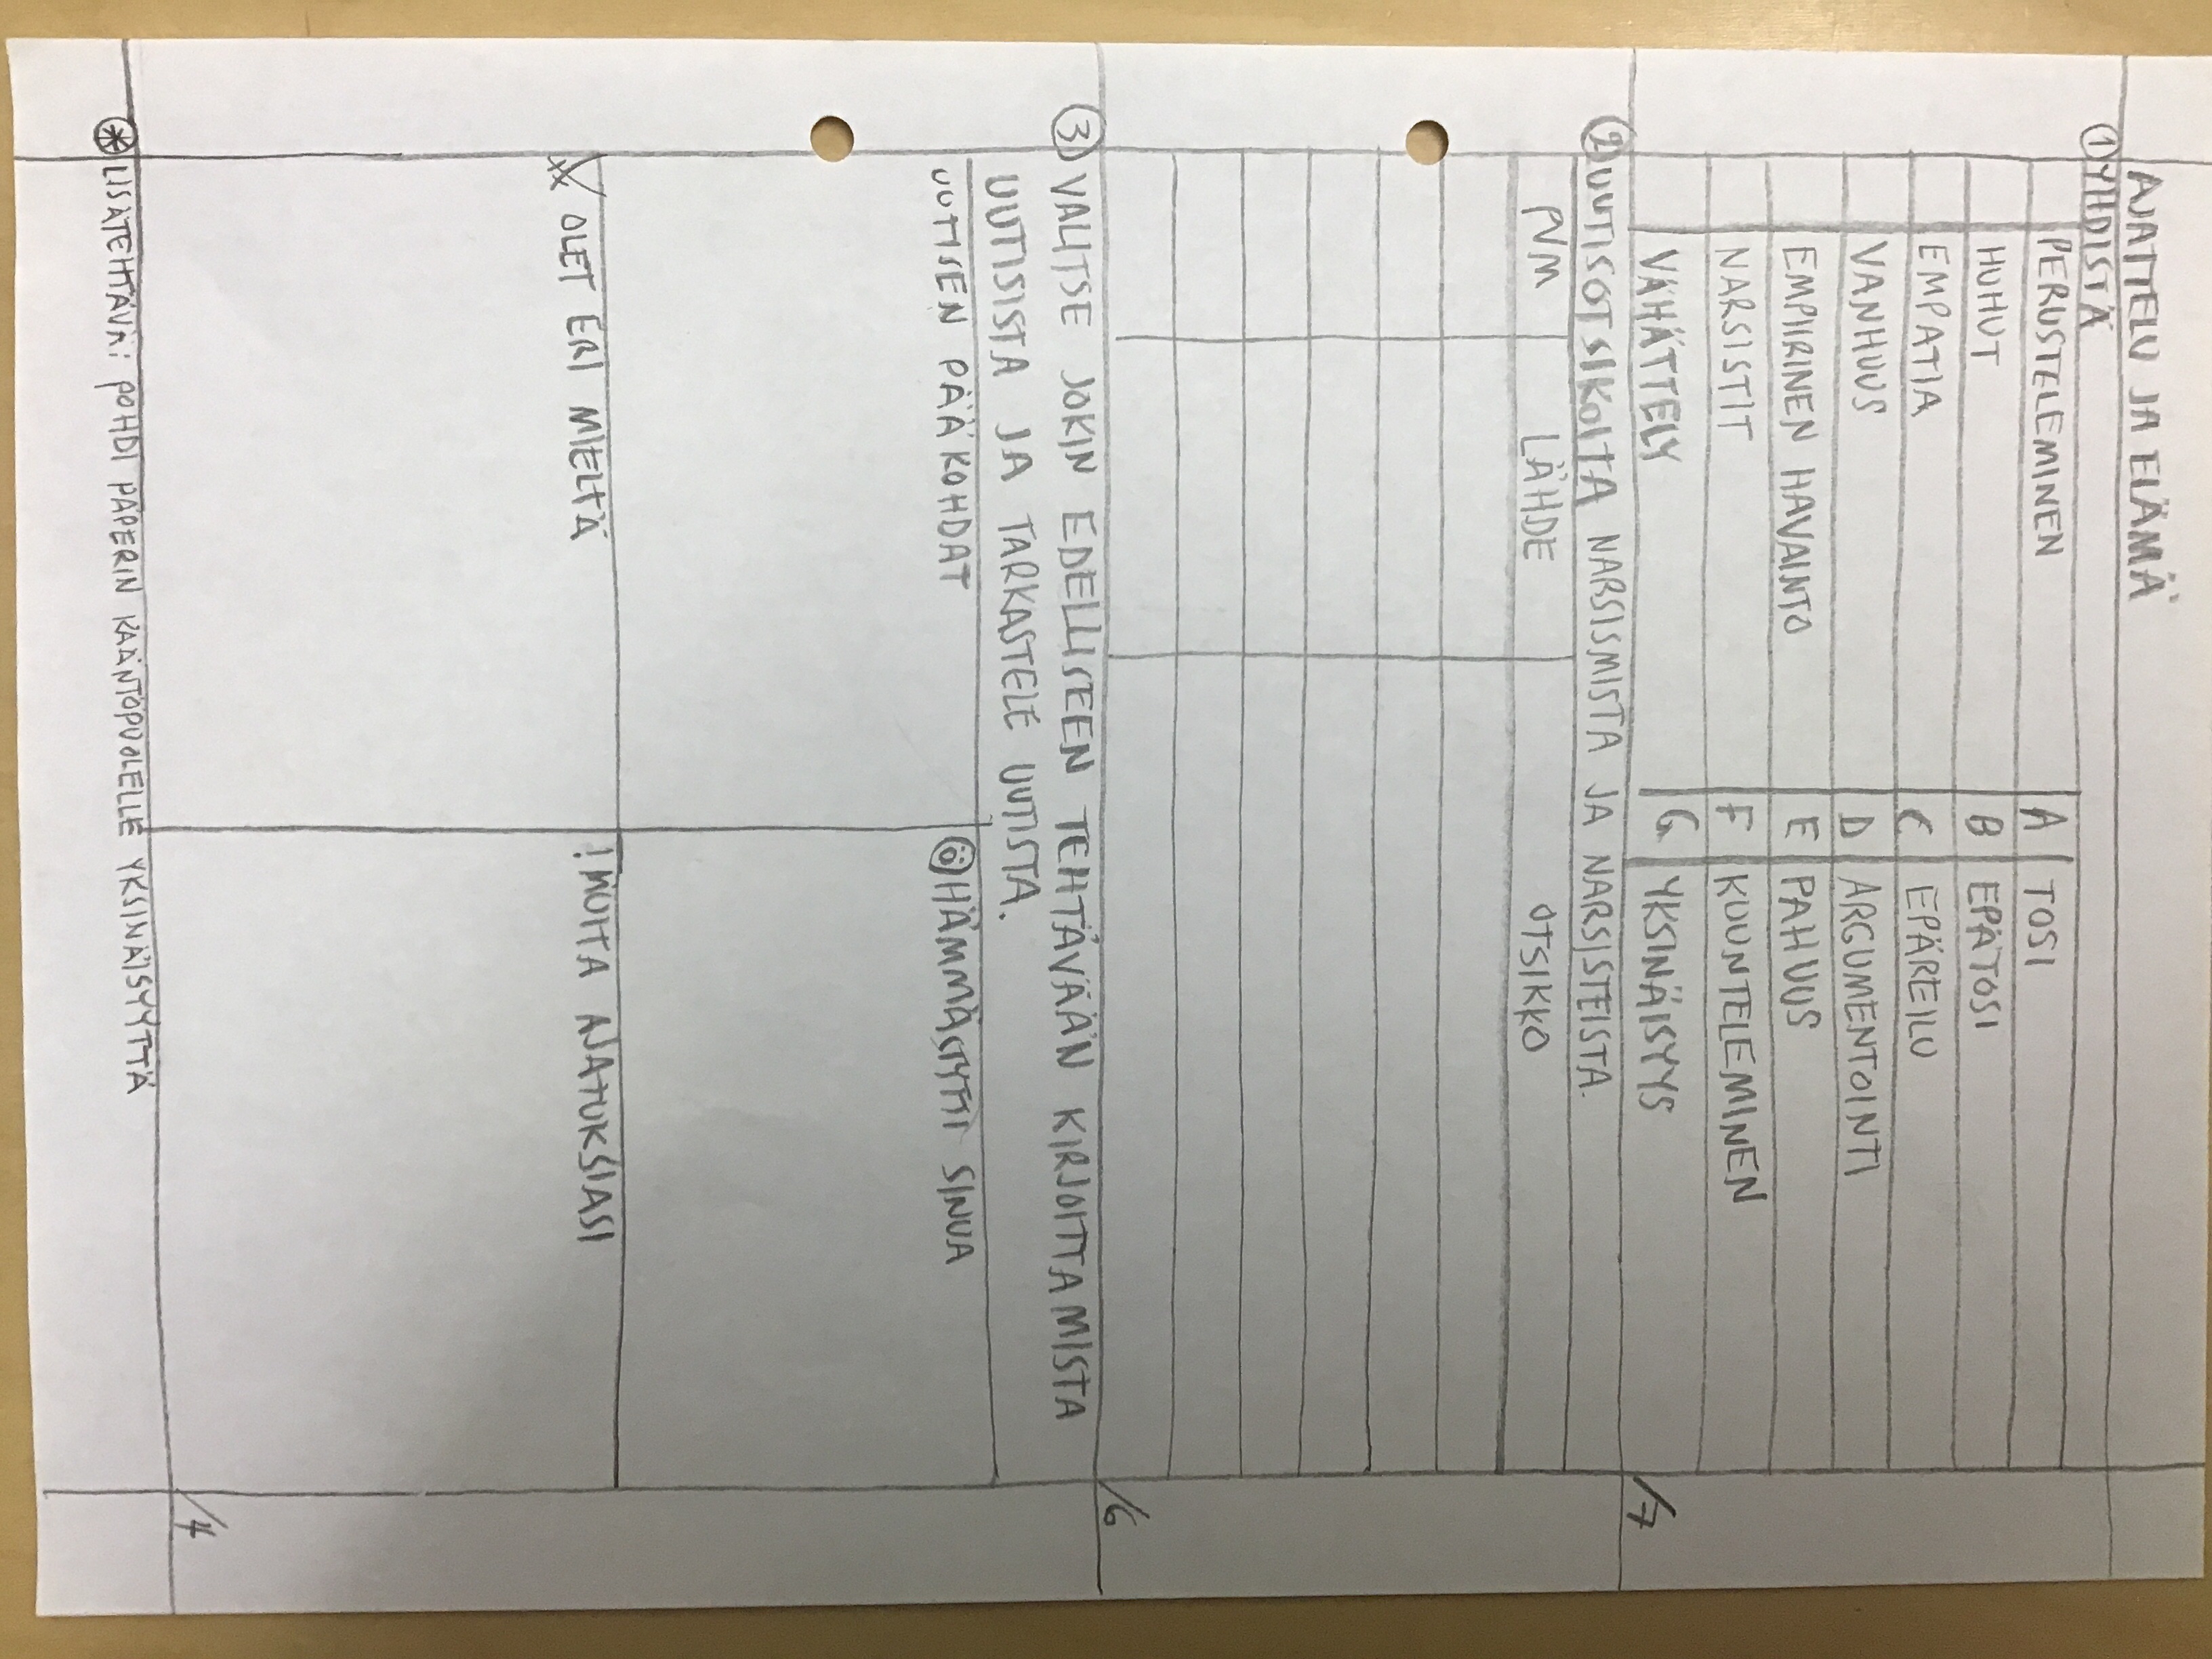 AJATTELU JA ELÄMÄ
① YHDISTÄ
PERUSTELEMINEN A TOSI
HUHUT B EPÄTOSI
EMPATIA C EPÄREILU
VANHUUS D ARGUMENTOINTI
EMPIIRINEN HAVAINTO E PAHUUS
NARSISTIT F KUUNTELEMINEN
VÄHÄTTELY G YKSINÄISYYS
/7
② UUTISOTSIKOITA NARSISMISTA JA NARSISTEISTA.
PVM LÄHDE OTSIKKO
/6
③ VALITSE JOKIN EDELLISEEN TEHTÄVÄÄN KIRJOITTAMISTA
UUTISISTA JA TARKASTELE UUTISTA.
UUTISEN PÄÄKOHDAT HÄMMÄSTYTTI SINUA
XX OLET ERI MIELTÄ ! MUITA AJATUKSIASI
/4
⊛ LISÄTEHTÄVÄ: POHDI PAPERIN KÄÄNTÖPUOLELLE YKSINÄISYYTTÄ